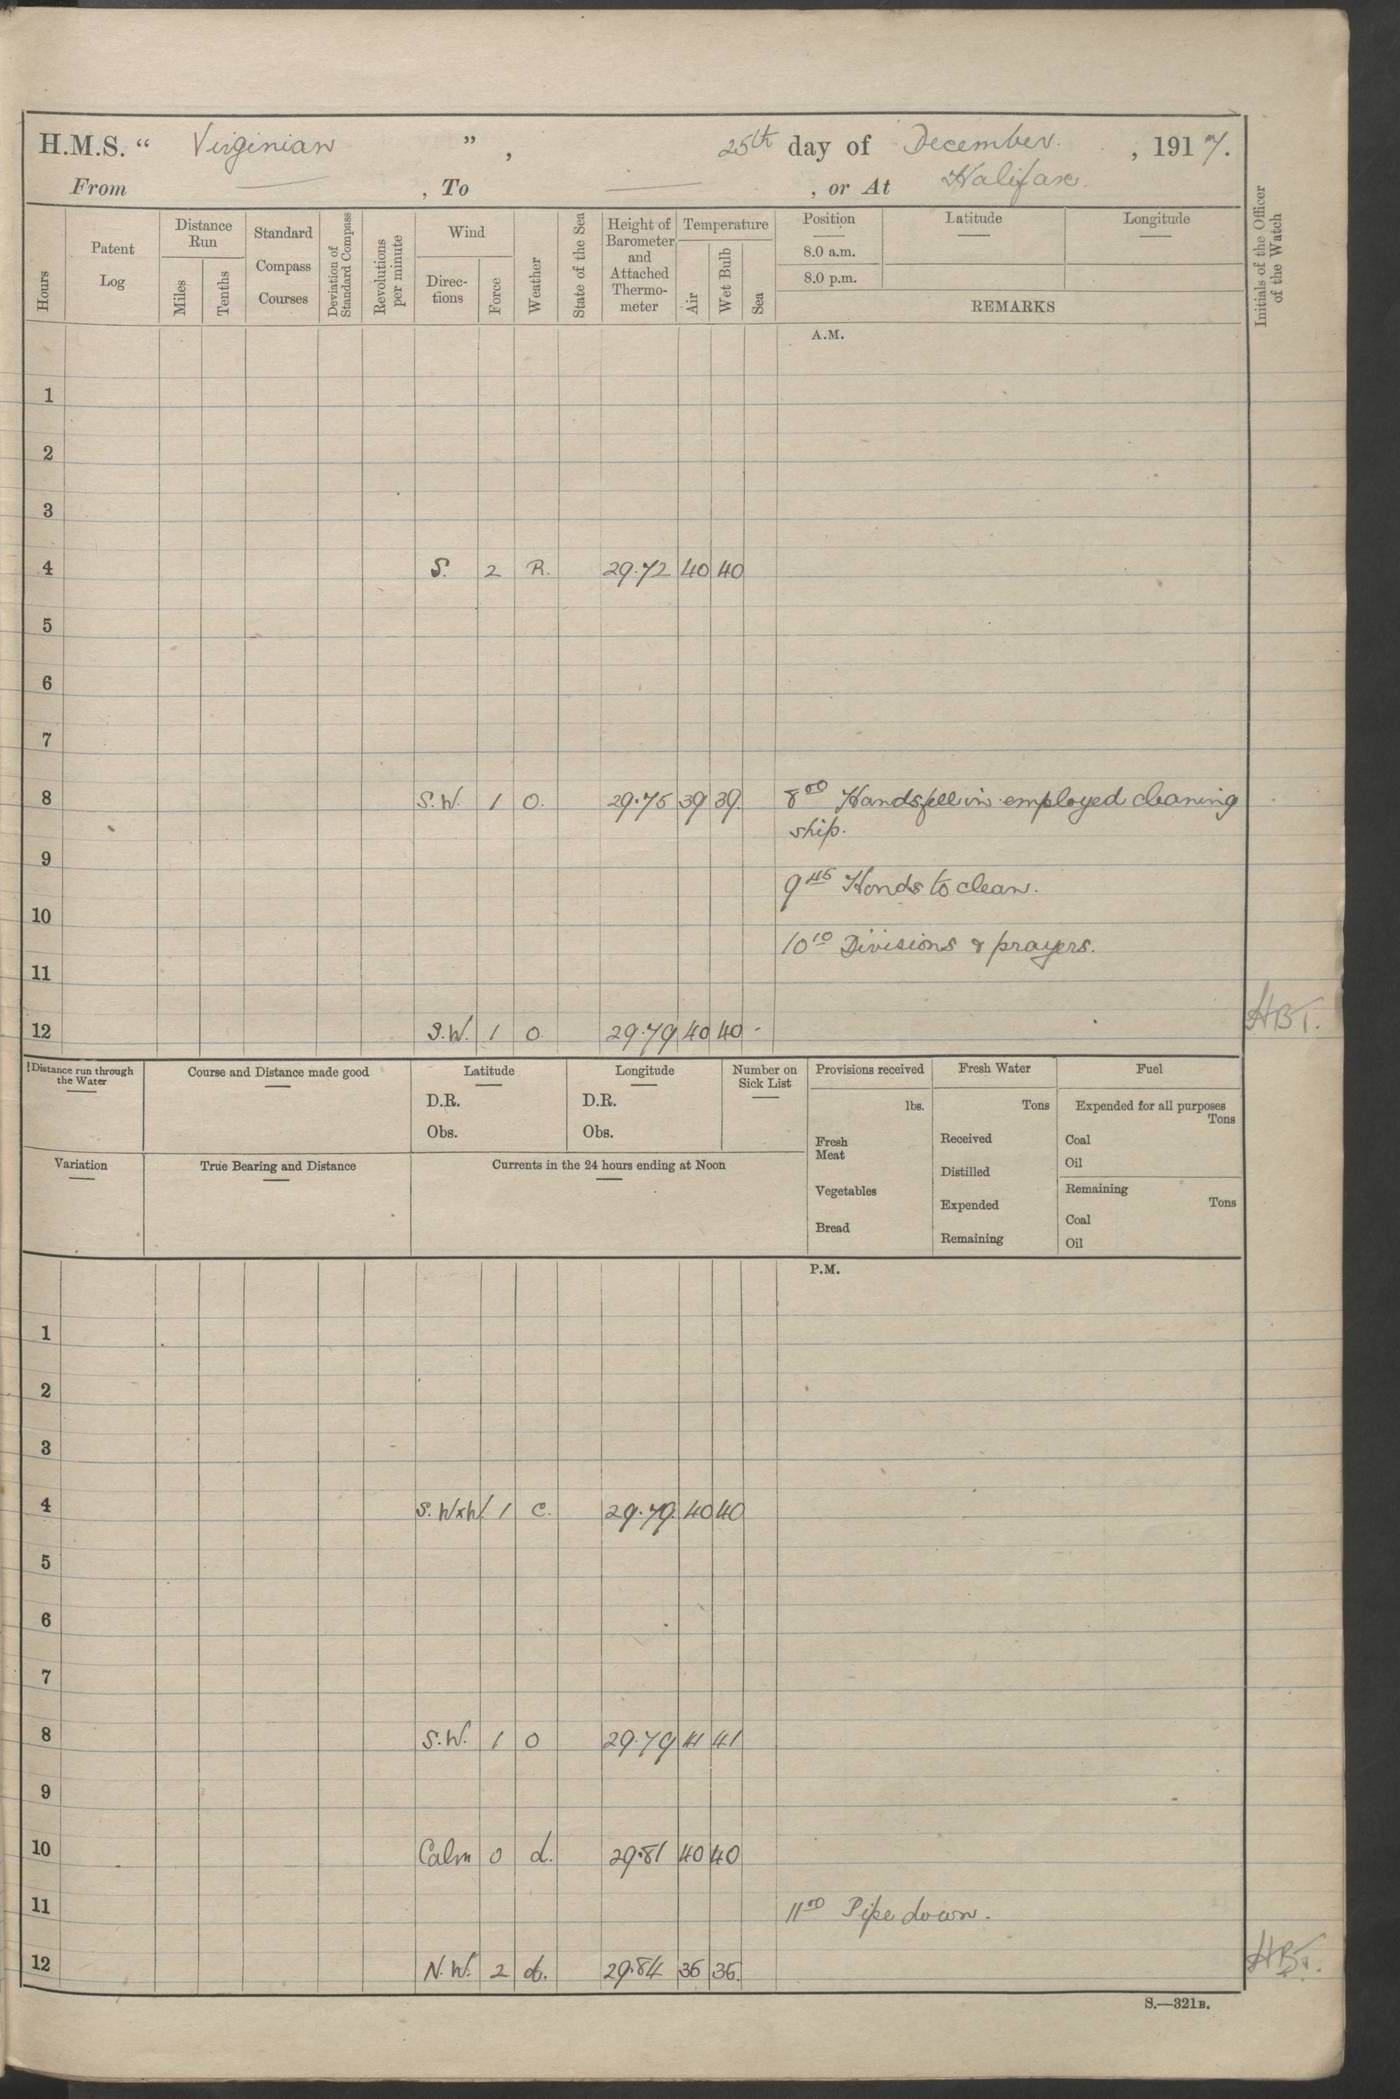 H.M.S. " Virginian ", 25th day of December. , 1917.
From — , To — , or At Halifax.
Hours
Patent Log
Distance Run
Miles
Tenths
Standard Compass Courses
Deviation of Standard Compass
Revolutions per minute
Wind
Direc-tions
Force
Weather
State of the Sea
Height of Barometer and Attached Thermo-meter
Temperature
Air
Wet Bulb
Sea
Position
8.0 a.m.
8.0 p.m.
Latitude
Longitude
REMARKS
Initials of the Officer of the Watch
A.M.
1
2
3
4 S. 2 R. 29.72 40 40
5
6
7
8 S.W. 1 O. 29.75 39 39. 8 00 Hands fell in employed cleaning
ship.
9
9 45 Hands to clean.
10
10 10 Divisions & prayers.
11
12 S.W. 1 O 29.79 40 40 - HBT.
Distance run through the Water
Course and Distance made good
Latitude
D.R.
Obs.
Longitude
D.R.
Obs.
Number on Sick List
Provisions received
lbs.
Fresh Meat
Vegetables
Bread
Fresh Water
Tons
Received
Distilled
Expended
Remaining
Fuel
Expended for all purposes
Tons
Coal
Oil
Remaining
Tons
Coal
Oil
Variation
True Bearing and Distance
Currents in the 24 hours ending at Noon
P.M.
1
2
3
4 S.WxW. 1 C. 29.79. 40 40
5
6
7
8 S.W. 1 O 29.79 41 41
9
10 Calm 0 d. 29.81 40 40
11 11 00 Pipe down.
12 N.W. 2 29.84 36 36. HBT.
S.—321B.